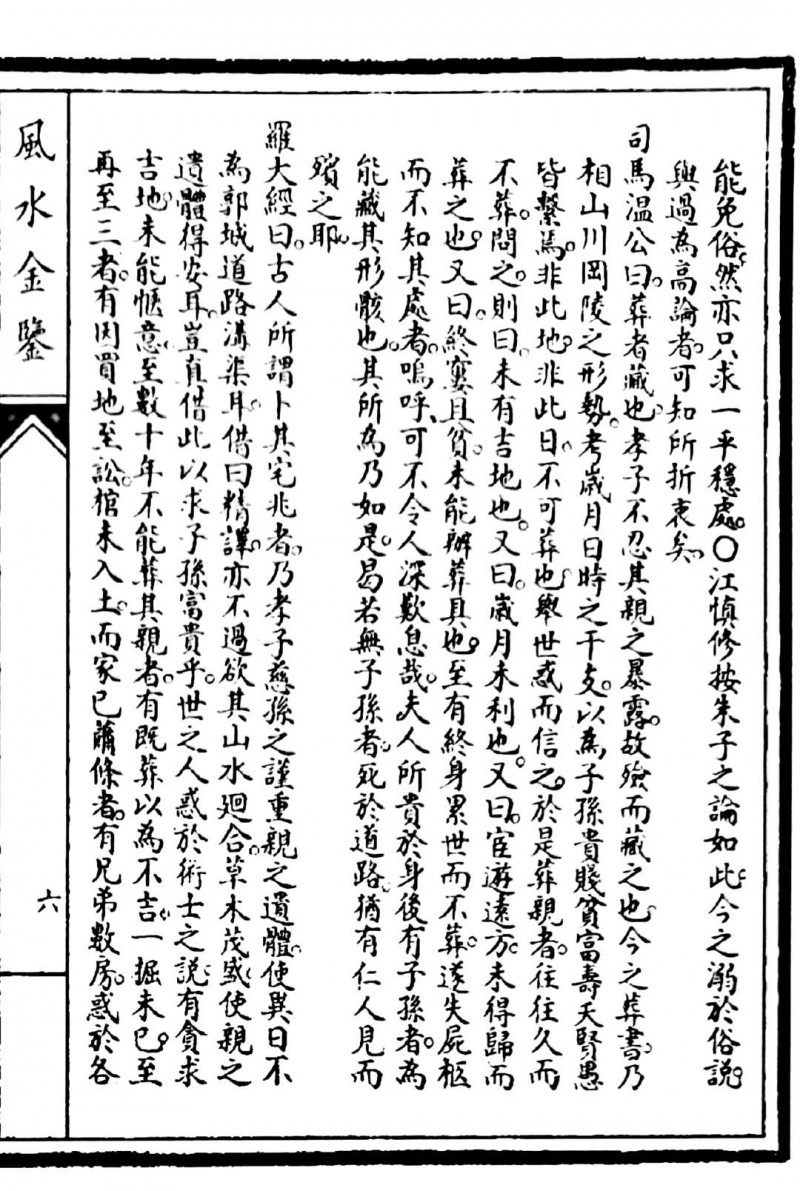 能免俗。然亦只求一平穩處。〇江慎修按朱子之論如此。今之溺於俗說。
與過為高論者。可知所折衷矣。
司馬温公曰。葬者藏也。孝子不忍其親之暴露。故殮而藏之也。今之葬書。乃
相山川岡陵之形勢。考歲月日時之干支。以為子孫貴賤貧富壽夭賢愚
皆繫焉。非此地非此日不可葬也。舉世惑而信之。於是葬親者。往往久而
不葬。問之。則曰。未有吉地也。又曰。歲月未利也。又曰。宦遊遠方。未得歸而
葬之也。又曰。終窶且貧。未能辦葬具也。至有終身累世而不葬。遂失屍柩
而不知其處者。嗚呼。可不令人深歎息哉。夫人所貴於身後有子孫者。為
能藏其形骸也。其所為乃如是。曷若無子孫者。死於道路。猶有仁人見而
殯之耶。
羅大經曰。古人所謂卜其宅兆者。乃孝子慈孫之謹重親之遺體。使異日不
為郭城道路溝渠耳。借曰精譯。亦不過欲其山水廻合。草木茂盛。使親之
遺體得安耳。豈直借此以求子孫富貴乎。世之人惑於術士之說。有貪求
吉地未能愜意。至數十年不能葬其親者。有既葬以為不吉。一掘未已。至
再至三者。有因買地至訟。棺未入土。而家已蕭條者。有兄弟數房。惑於各
風水金鑒
六